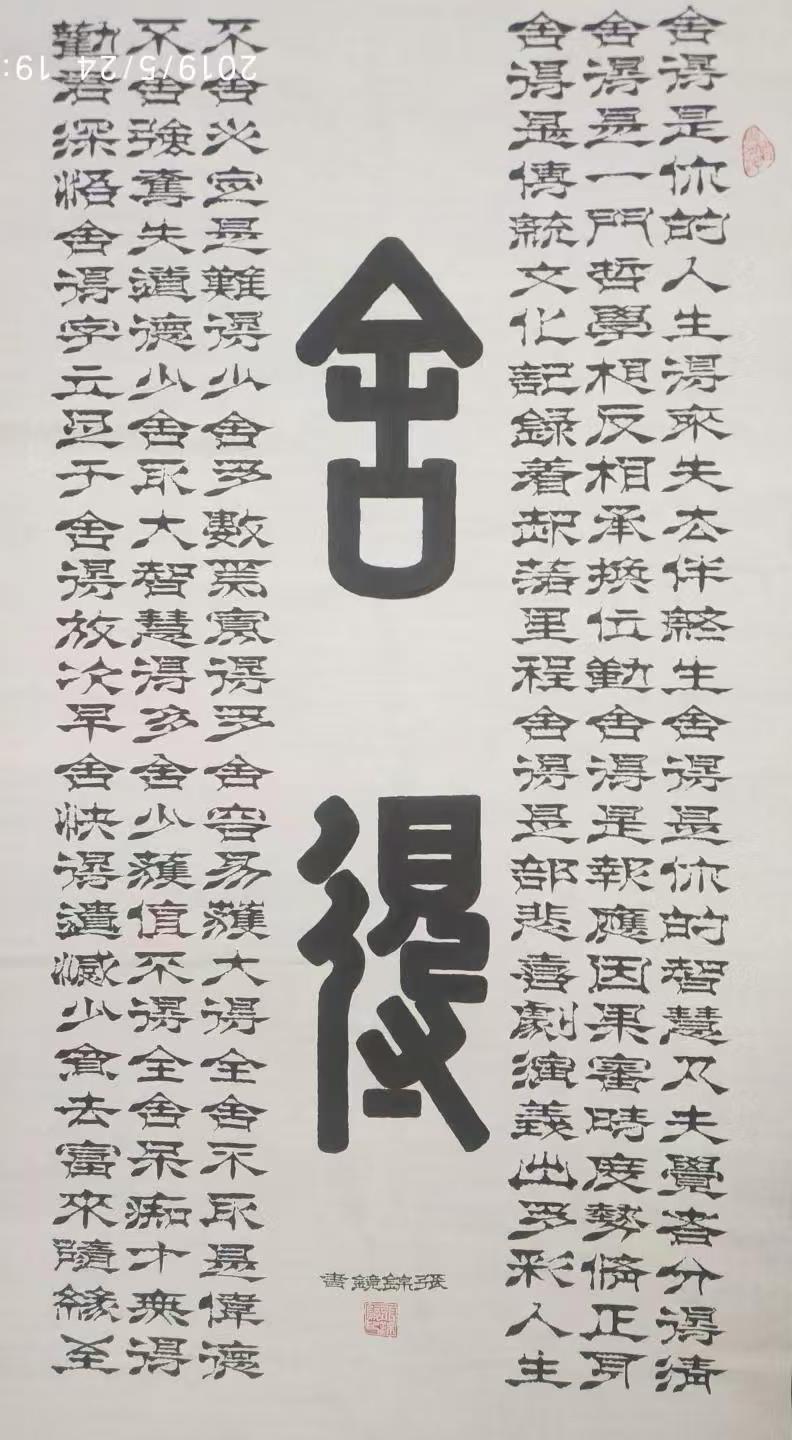 舍得是你的人生得來失去伴終生舍得是你的智慧凡夫覺者分得清
舍得是一門哲學相反相承換位勤舍得是報應因果審時度勢脩正身
舍得是傳統文化記錄着起落里程舍得是部悲喜劇演義出多彩人生
舍得
張錦鏡書
不舍必定是難得少舍多數為寡得多舍容易獲大得全舍不取是偉德
不舍強奪失道德少舍取大智慧得多舍少獲值不得全舍呆痴才無得
勸君深悟舍得字立足于舍得放次早舍快得遺憾少貧去富來隨緣至
2019/5/24 19: